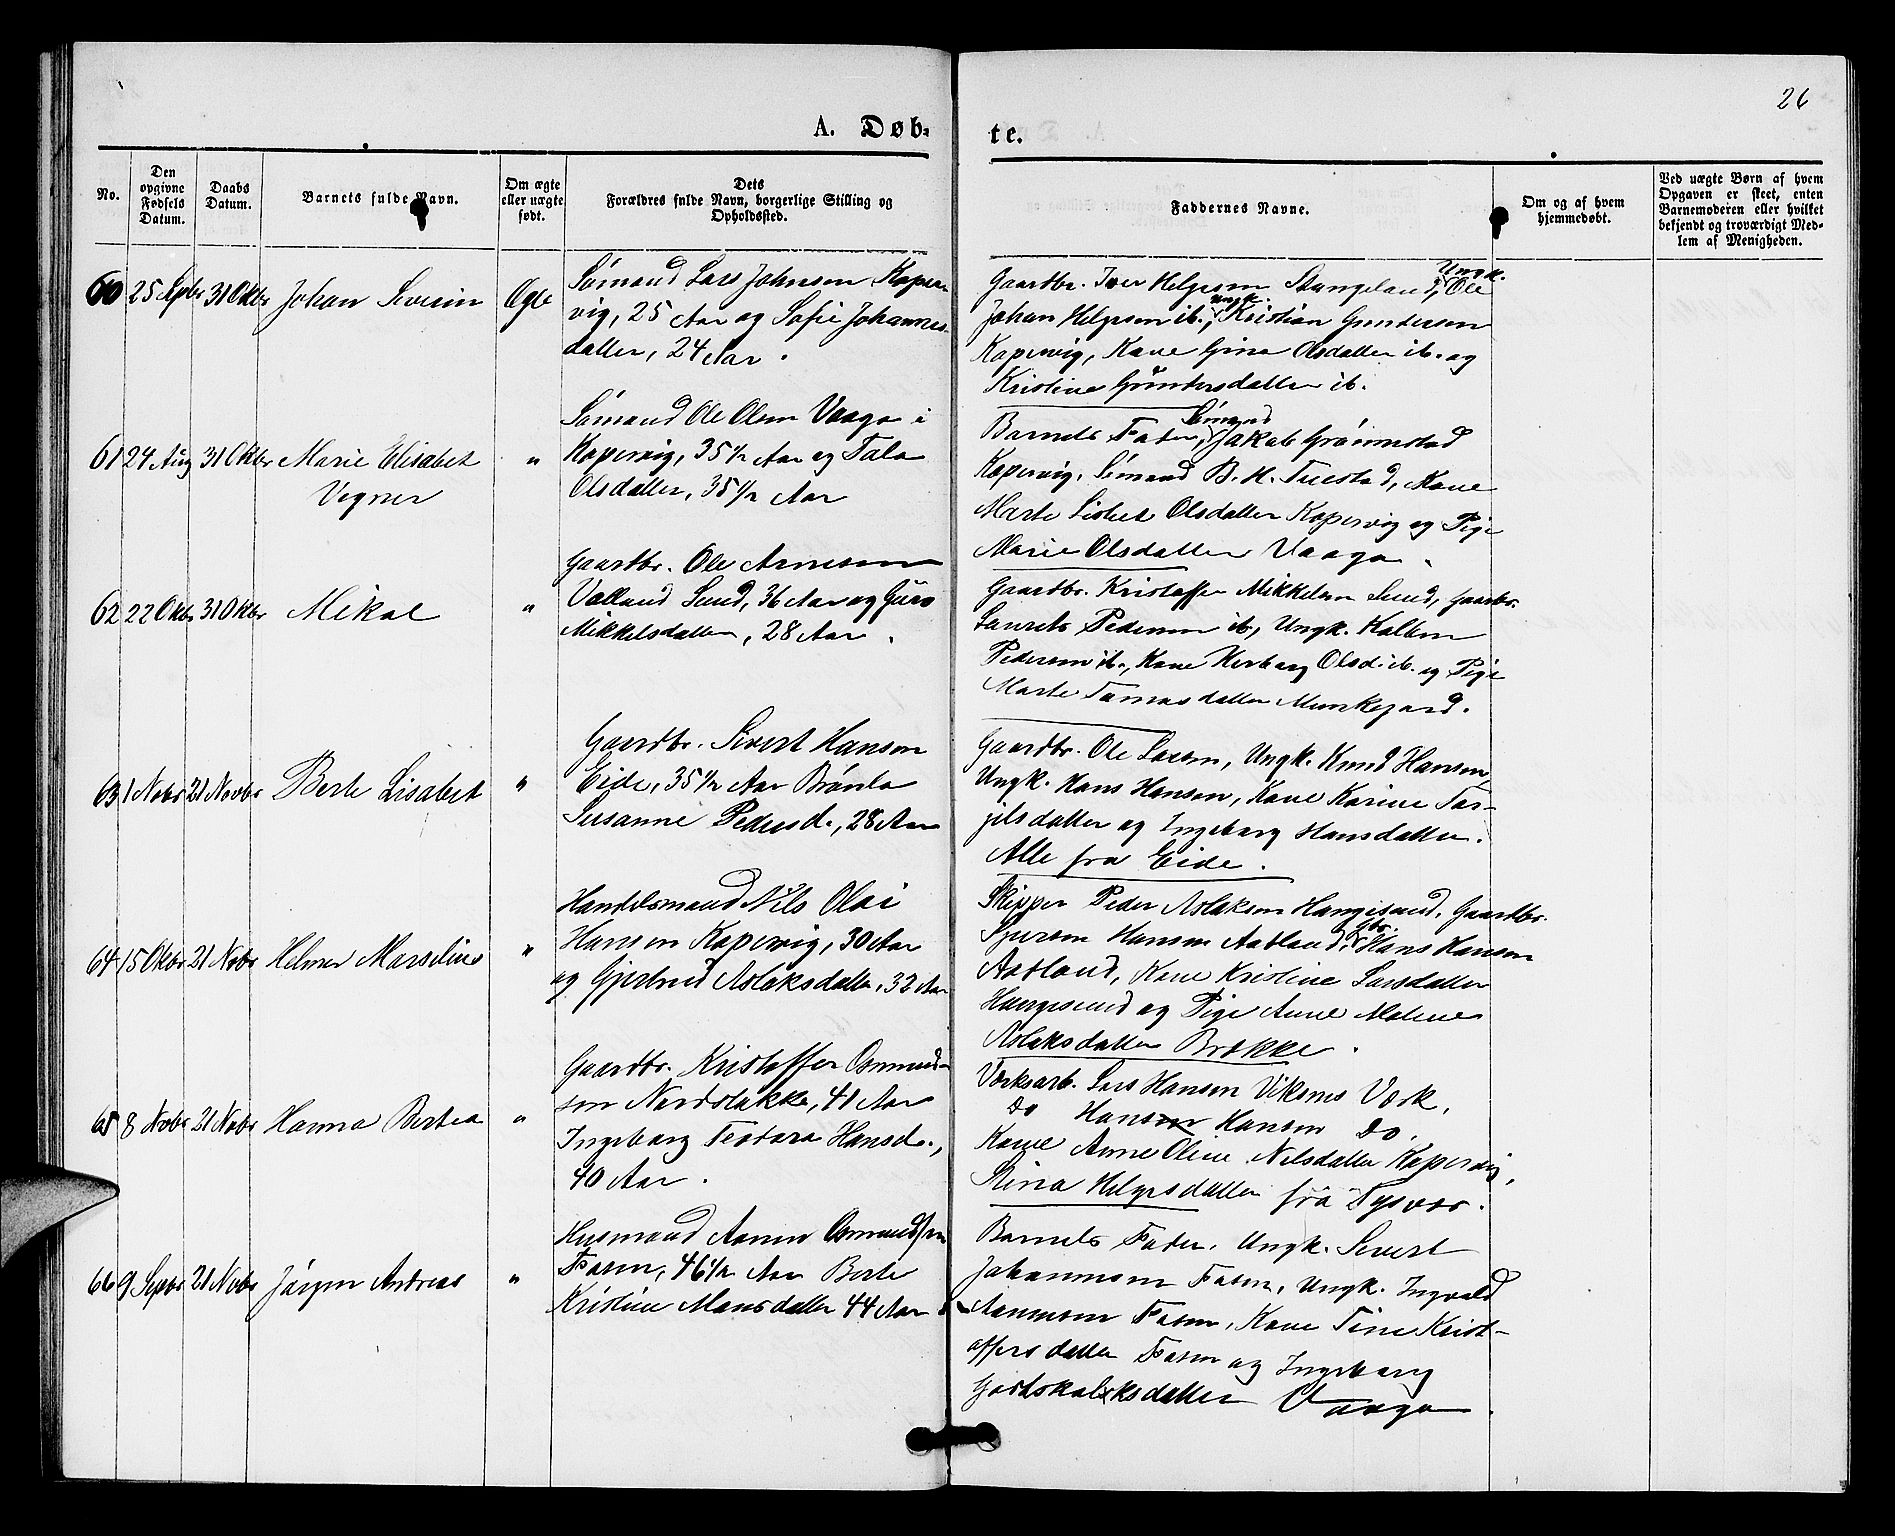 26
A. Døb-
te.
No.
Den
opgivne
Fødsels
Datum.
Daabs
Datum.
Barnets fulde Navn.
Om ægte
eller uægte
født.
Dets
Forældres fulde Navn, borgerlige Stilling og
Opholdssted.
Faddernes Navne.
Om og af hvem
hjemmedøbt.
Ved uægte Børn af hvem
Opgaven er skeet, enten
Barnemoderen eller hvilket
bekjendt og troværdigt Med-
lem af Menigheden.
60 25 Spbr 31 Okbr Johan Severin Ægte
Sømand Lars Johnsen Koper-
vig, 25 Aar og Sofie Johannes-
datter, 24 Aar.
Gaardbr. Iver Helgesen Stangeland, Ungk. Ole
Johan Helgesen ib., Ungk. Kristian Gundersen
Kopervig, Kone Gina Olsdatter ib. og
Kristine Gundersdatter ib.
61 24 Aug 31 Okbr Marie Elisabet
Vegner "
Sømand Ole Olsen Vaage i
Kopervig, 35 1/2 Aar og Tala
Olsdatter, 35 1/2 Aar
Barnets Fader, Sømand Jakob Grønnestad
Kopervig, Sømand B. H. Tuestad, Kone
Marte Lisbet Olsdatter Kopervig og Pige
Marie Olsdatter Vaage.
62 22 Okbr 31 Okbr Mikal "
Gaardbr. Ole Arnesen
Valland Sund, 36 Aar og Guro
Mikkelsdatter, 28 Aar.
Gaardbr. Kristoffer Mikkelsen Sund, Gaardbr.
Laurits Pedersen ib., Ungk. Halken
Pedersen ib., Kone Herborg Olsd. ib. og Pige
Marte Tomasdatter Munkejord.
63 1 Nobr 21 Novbr Berte Lisabet "
Gaardbr. Sivert Hansen
Eide, 35 1/2 Aar Brønla
Susanne Pedersd., 28 Aar
Gaardbr. Ole Larsen, Ungk. Knud Hansen,
Ungk. Hans Hansen, Kone Karine Tor-
gilsdatter og Ingeborg Hansdatter.
Alle fra Eide.
64 15 Okbr 21 Nobr Helmer Marselius "
Handelsmand Nils Olai
Hansen Kopervig, 30 Aar
og Gjertrud Aslaksdatter, 32 Aar
Skipper Peder Aslaksen Haugesund, Gaardbr.
Sjursen Hansen Aabland, Gbr. Hans Hansen
Aabland, Kone Kristine Larsdatter
Haugesund og Pige Anne Malene
Aslaksdatter Brække.
65 8 Nobr 21 Nobr Hanna Bertea "
Gaardbr. Kristoffer Osmund-
sen Nordstakke, 41 Aar
Ingeborg Teodora Hansd.,
40 Aar.
Verksarb. Lars Hansen Viksnes Værk,
do Hansen Hansen do.
Kone Anne Oline Nilsdatter Kopervig,
Stina Helgesdatter fra Tysvær.
66 9 Spbr 21 Nobr Jørgen Andreas "
Husmand Aanen Osmundsen
Fasen, 46 1/2 Aar Berte
Kristine Monsdatter 44 Aar
Barnets Fader, Ungk. Sivert
Johannesen Fasen, Ungk. Ingvald
Aanensen Fasen, Kone Tine Krist-
offersdatter Fasen og Ingeborg
Godtskalksdatter Vaage.